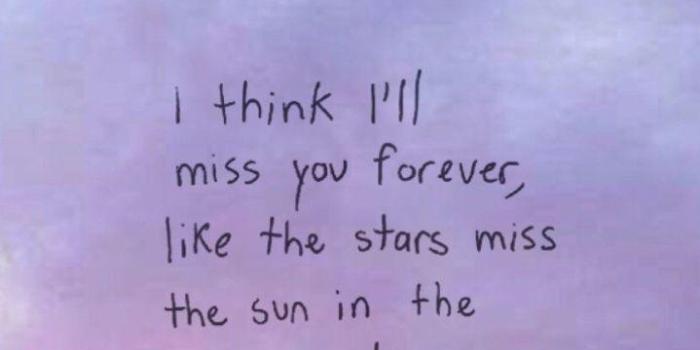 I think I'll
miss you forever,
like the stars miss
the sun in the